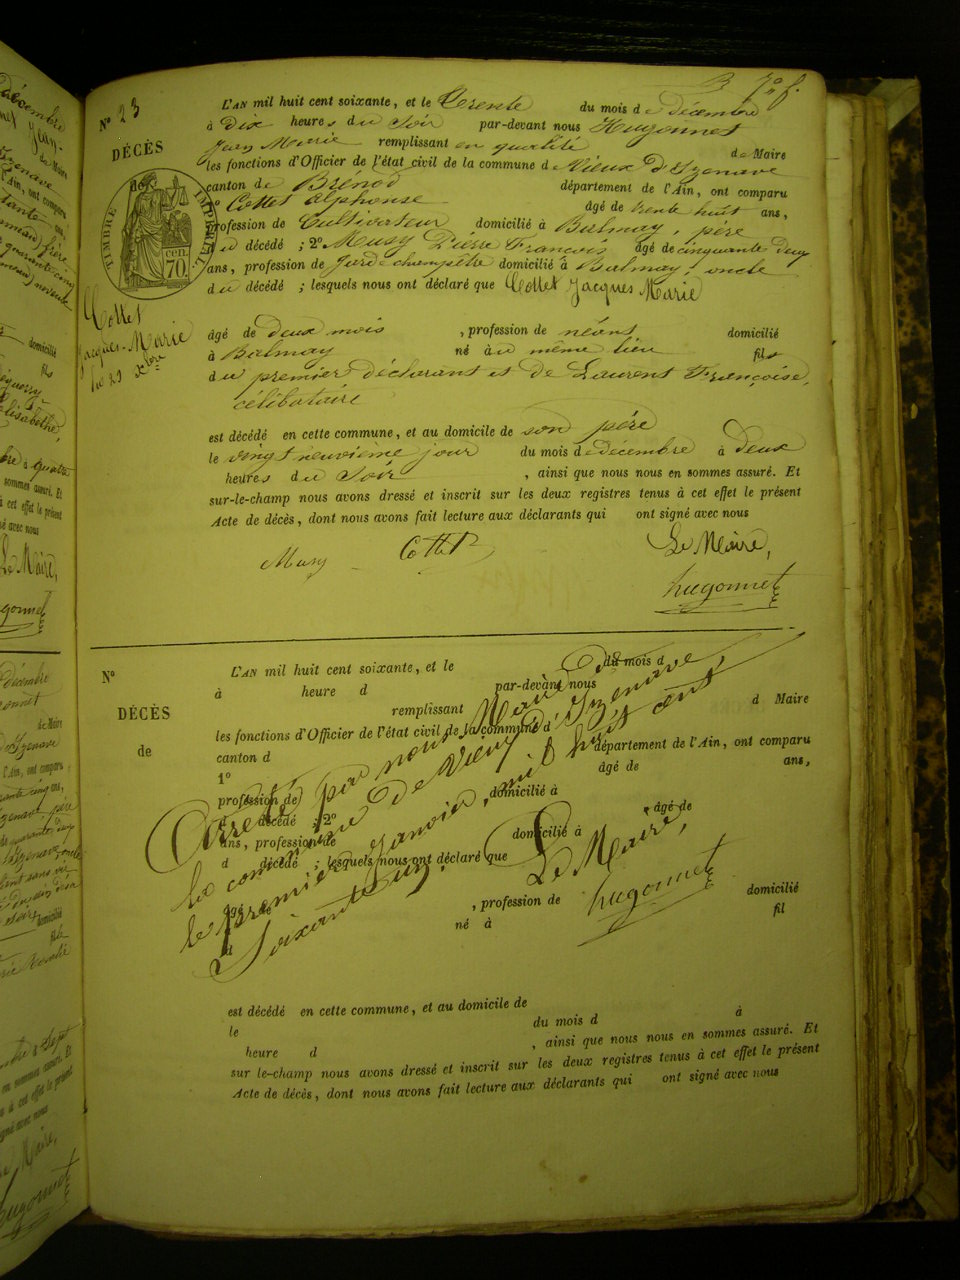 3 7.bre f.
Nº 23
DÉCÈS
de
TIMBRE IMPÉRIAL
70 cen.
Cottet
Jacques-Marie
le 29 xbre
L'AN mil huit cent soixante, et le trente du mois de décembre
à dix heures du soir par-devant nous Hugonnet
Jean Marie remplissant en qualité de Maire
les fonctions d'Officier de l'état civil de la commune de Vieux d'Izenave
canton de Brénod département de l'Ain, ont comparu
1º Cottet alphonse âgé de trente huit ans,
profession de Cultivateur domicilié à Balmay, père
du décédé ; 2º Musy Pierre François âgé de cinquante deux
ans, profession de garde champêtre domicilié à Balmay, oncle
du décédé ; lesquels nous ont déclaré que Cottet Jacques Marie
âgé de deux mois , profession de néant domicilié
à Balmay né à u même lieu fils
du premier déclarant et de Laurent Françoise,
célibataire
est décédé en cette commune, et au domicile de son père
le vingt neuvième jour du mois de décembre à deux
heures du soir , ainsi que nous nous en sommes assuré. Et
sur-le-champ nous avons dressé et inscrit sur les deux registres tenus à cet effet le présent
Acte de décès, dont nous avons fait lecture aux déclarants qui ont signé avec nous
Musy Cottet Le Maire,
hugonnet
Nº
DÉCÈS
de
L'AN mil huit cent soixante, et le du mois d
à heure d par-devant nous
remplissant d Maire
les fonctions d'Officier de l'état civil de la commune d
canton d département de l'Ain, ont comparu
1º âgé de ans,
profession de domicilié à
d décédé ; 2º âgé de
ans, profession de domicilié à
d décédé ; lesquels nous ont déclaré que
âgé de , profession de domicilié
à né à fil
d
Arrêté par nous Maire de
la commune de Vieux d'Izenave
le premier Janvier, mil huit cent
soixante un.
Le Maire,
hugonnet
est décédé en cette commune, et au domicile de
le du mois d à
heure d , ainsi que nous nous en sommes assuré. Et
sur le-champ nous avons dressé et inscrit sur les deux registres tenus à cet effet le présent
Acte de décès, dont nous avons fait lecture aux déclarants qui ont signé avec nous